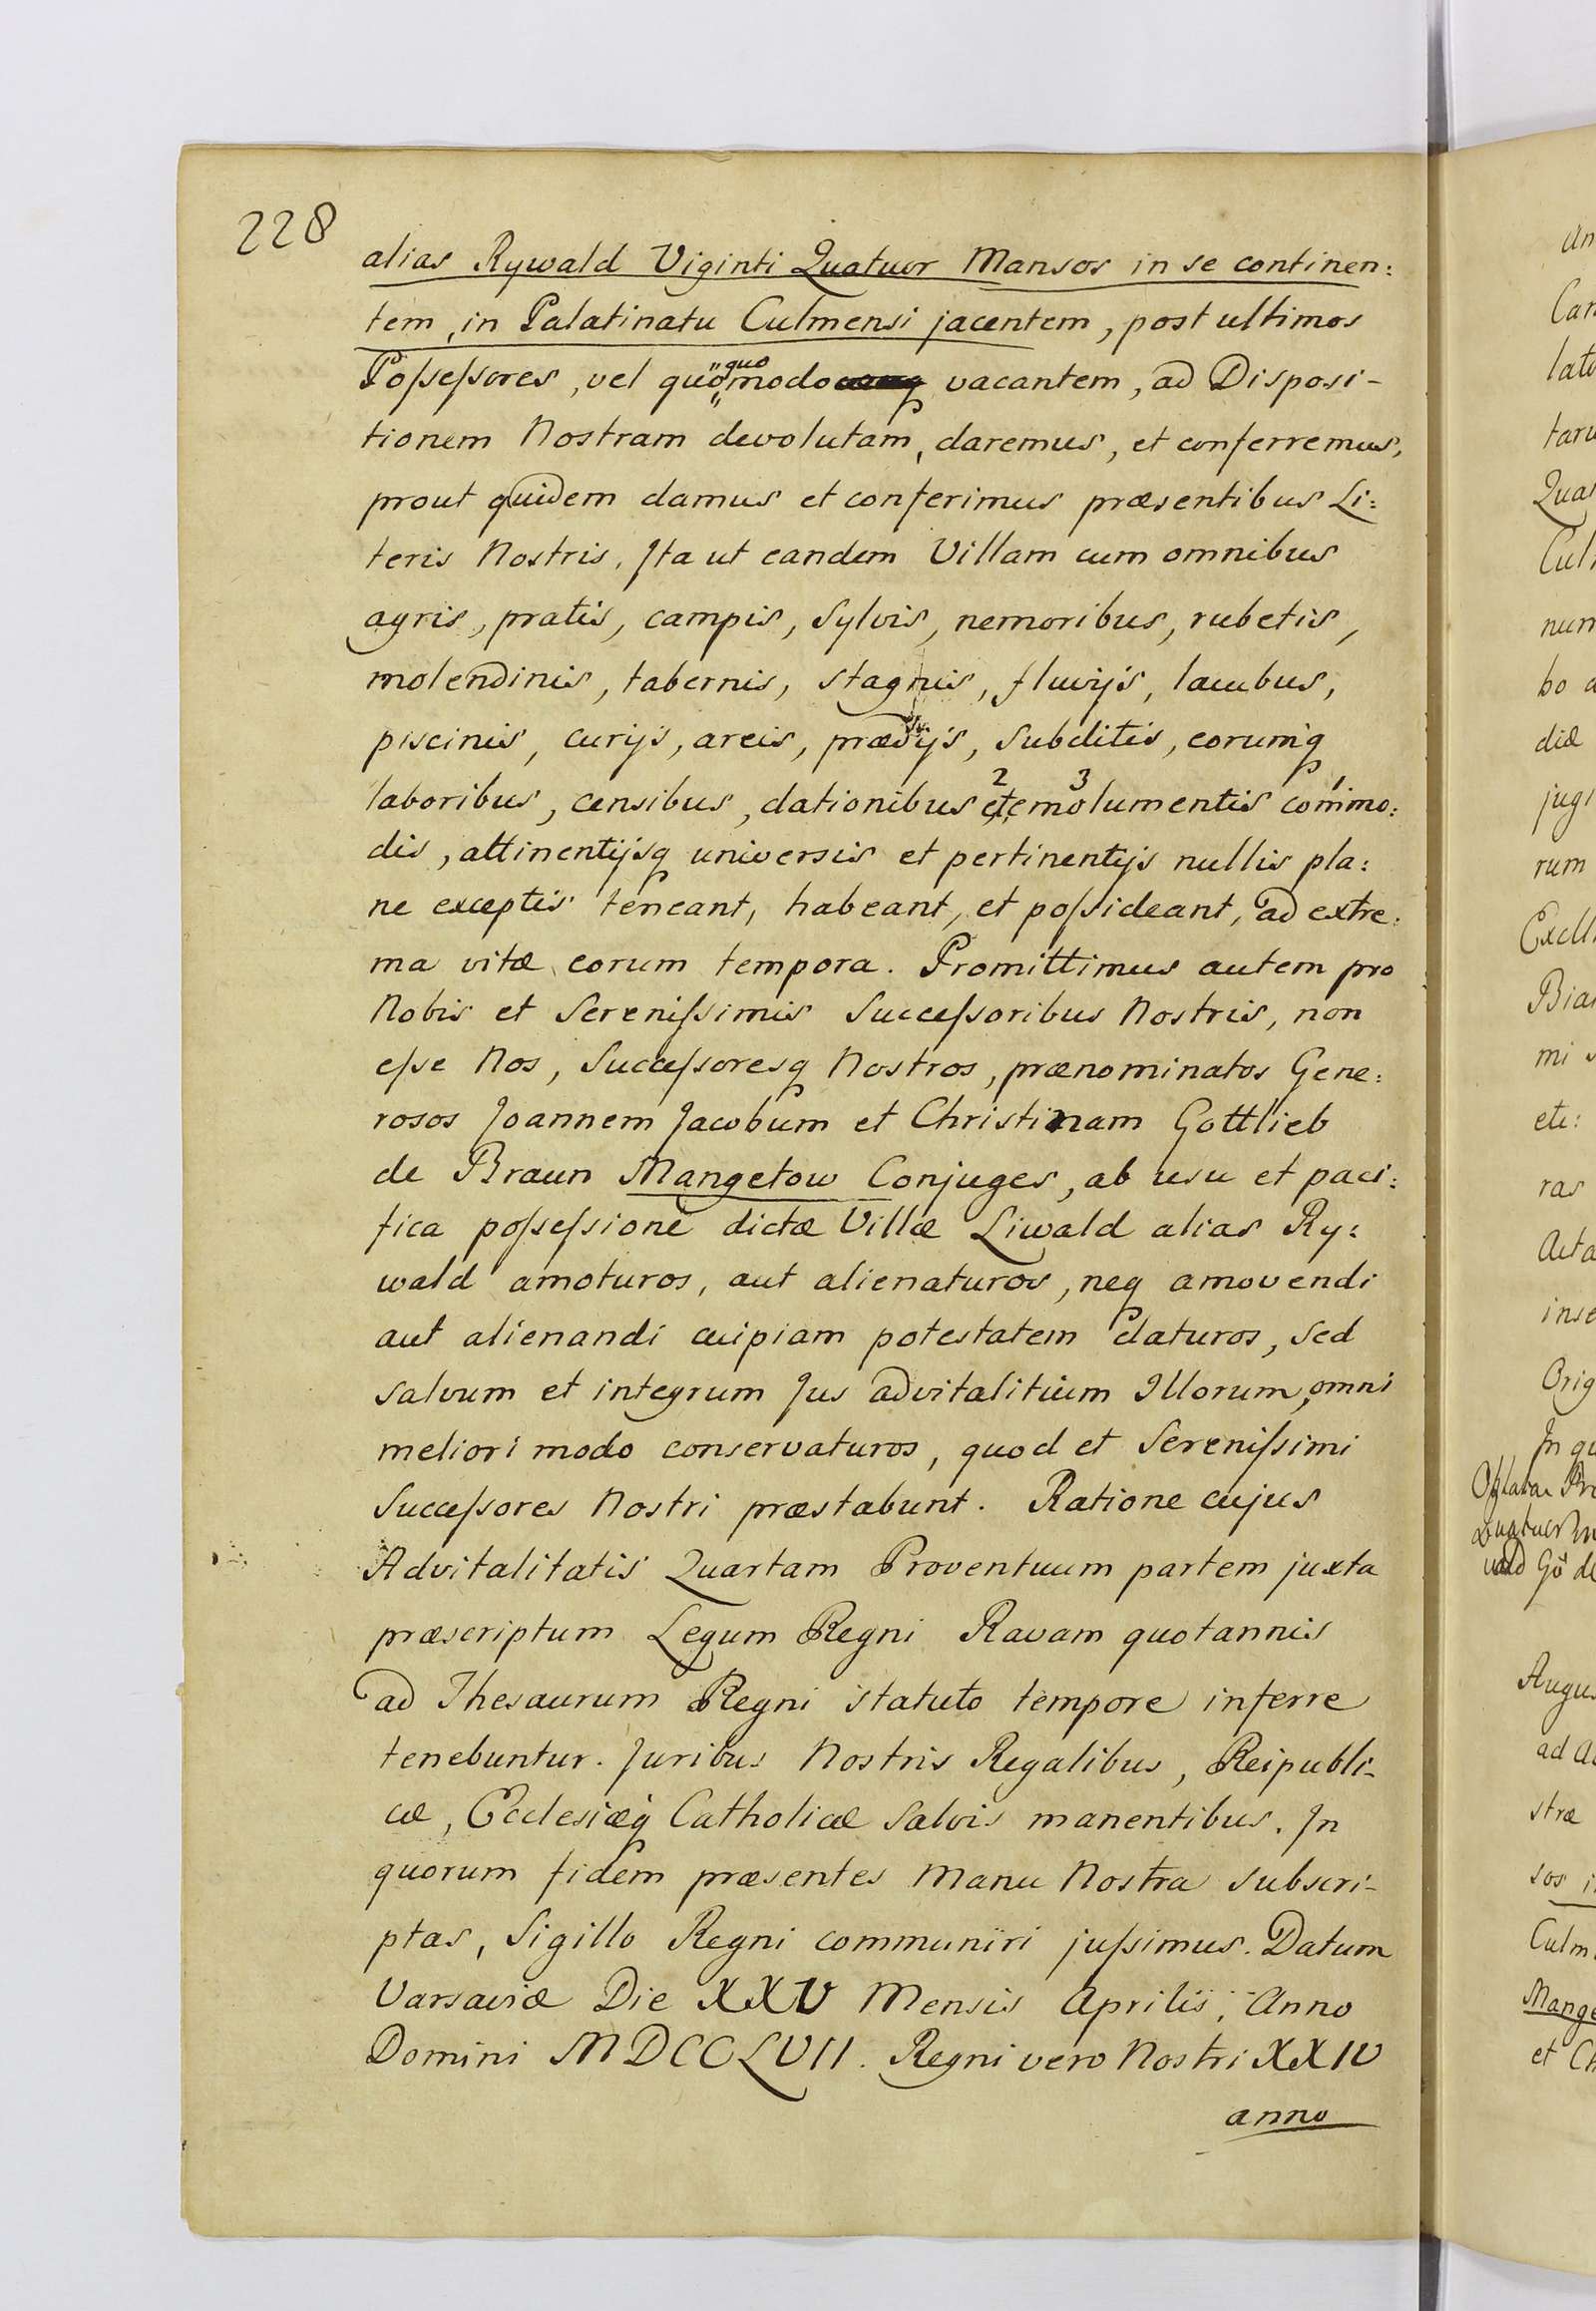 228
alias Rywald Viginti Quatuor Mansos in se continen:
tem, in Palatinatu Culmensi jacentem, post ultimos
Poſseſsores, vel quoquomodo vacantem, ad Disposi-
tionem Nostram devolutam, daremus, et conferremus,
prout quidem damus et conferimus præsentibus Li:
teris Nostris. Ita ut eandem Villam cum omnibus
agris, pratis, campis, Sylvis, nemoribus, rubetis,
molendinis, tabernis, stagnis, fluvijs, lacubus,
piscinis, curijs, areis, prædijs, Subditis, eorumq
2 3 1
laboribus, censibus, dationibus et emolumentis com̄mo:
dis, attinentijsq universis et pertinentijs nullis pla:
ne exceptis teneant, habeant, et poſsideant, ad extre:
ma vitæ eorum tempora. Promittimus autem pro
Nobis et Sereniſsimis Succeſsoribus Nostris, non
eſse Nos, Succeſsoresq Nostros, prænominatos Gene:
rosos Joannem Jacobum et Christinam Gottlieb
de Braun Mangetow Conjuges, ab usu et paci:
fica poſseſsione dictæ Villæ Liwald alias Ry:
wald amoturos, aut alienaturos, neq amovendi
aut alienandi cuipiam potestatem daturos, Sed
salvum et integrum Jus advitalitium Illorum, omni
meliori modo conservaturos, quod et Sereniſsimi
Succeſsores Nostri præstabunt. Ratione cujus
Advitalitatis Quartam Proventuum partem juxta
præscriptum Legum Regni Ravam quotannis
ad Thesaurum Regni statuto tempore inferre
tenebuntur. Juribus Nostris Regalibus, Reipubli-
cæ, Ecclesiæq Catholicæ Salvis manentibus. In
quorum fidem præsentes Manu Nostra subscri-
ptas, Sigillo Regni communiri juſsimus. Datum
Varsaviæ Die XXV Mensis Aprilis, Anno
Domini MDCCLVII. Regni vero Nostri XXIV
anno